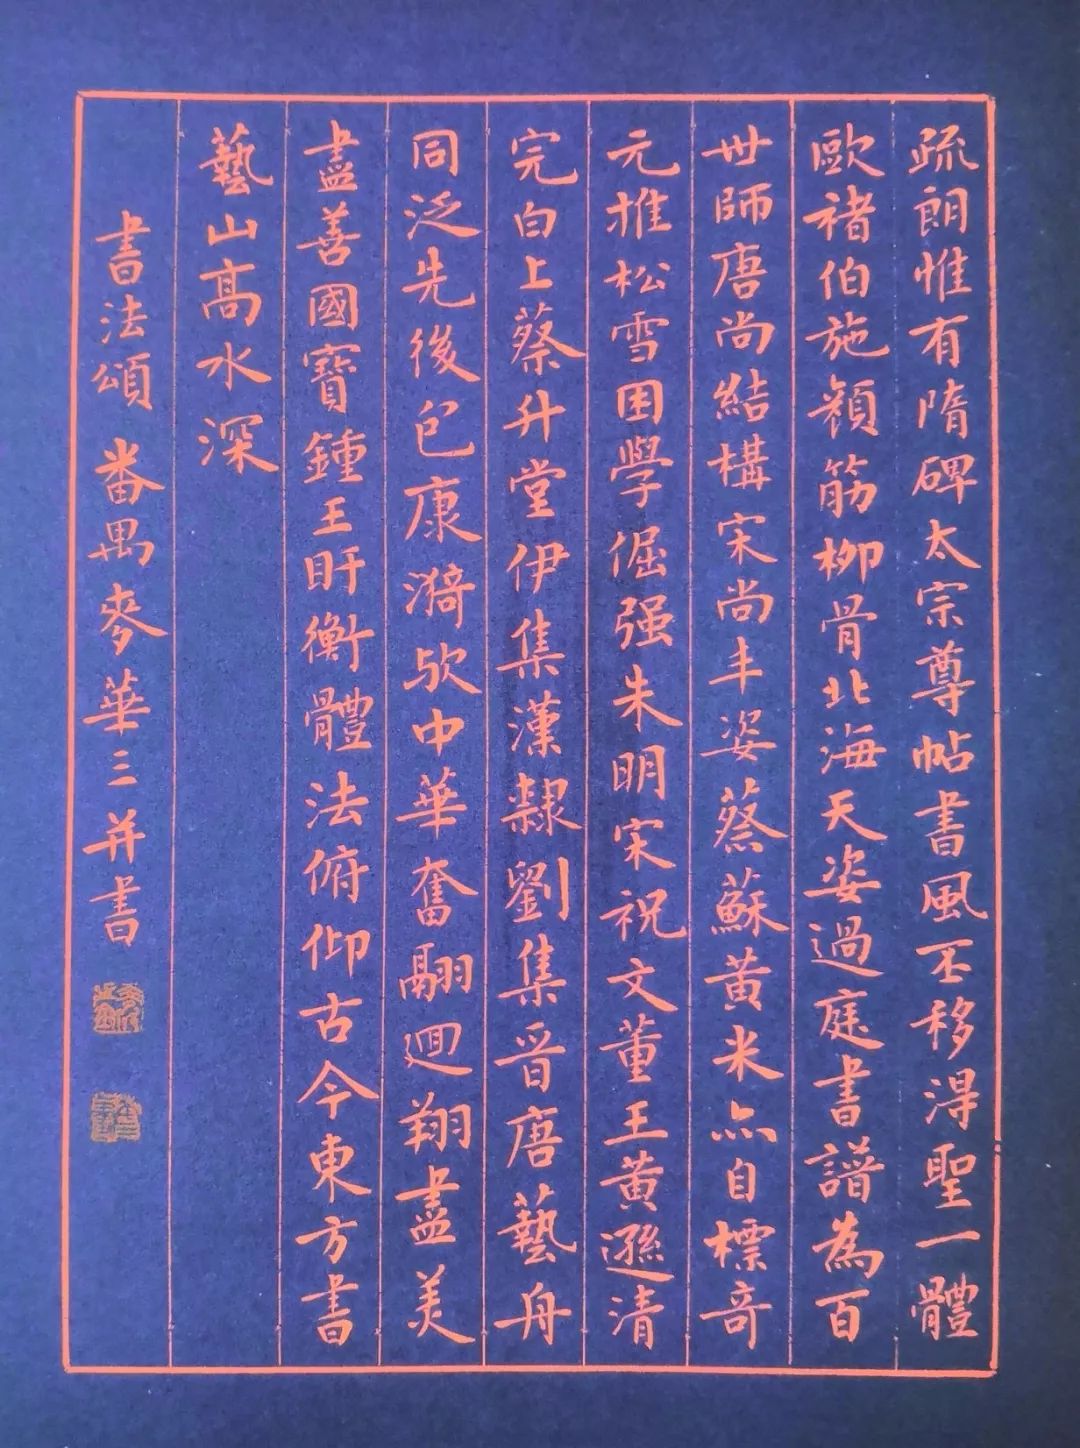 疏朗惟有隋碑太宗尊帖書風丕移得聖一體
歐褚伯施顏筋柳骨北海天姿過庭書譜為百
世師唐尚結構宋尚丰姿蔡蘇黃米亦自標奇
元推松雪困學倔强朱明宋祝文董王黃遜清
完白上蔡升堂伊集漢隸劉集晋唐藝舟
同泛先後包康漪欤中華奮翮迴翔盡美
盡善國寶鍾王盱衡體法俯仰古今東方書
藝山高水深
書法頌 番禺麥華三并書